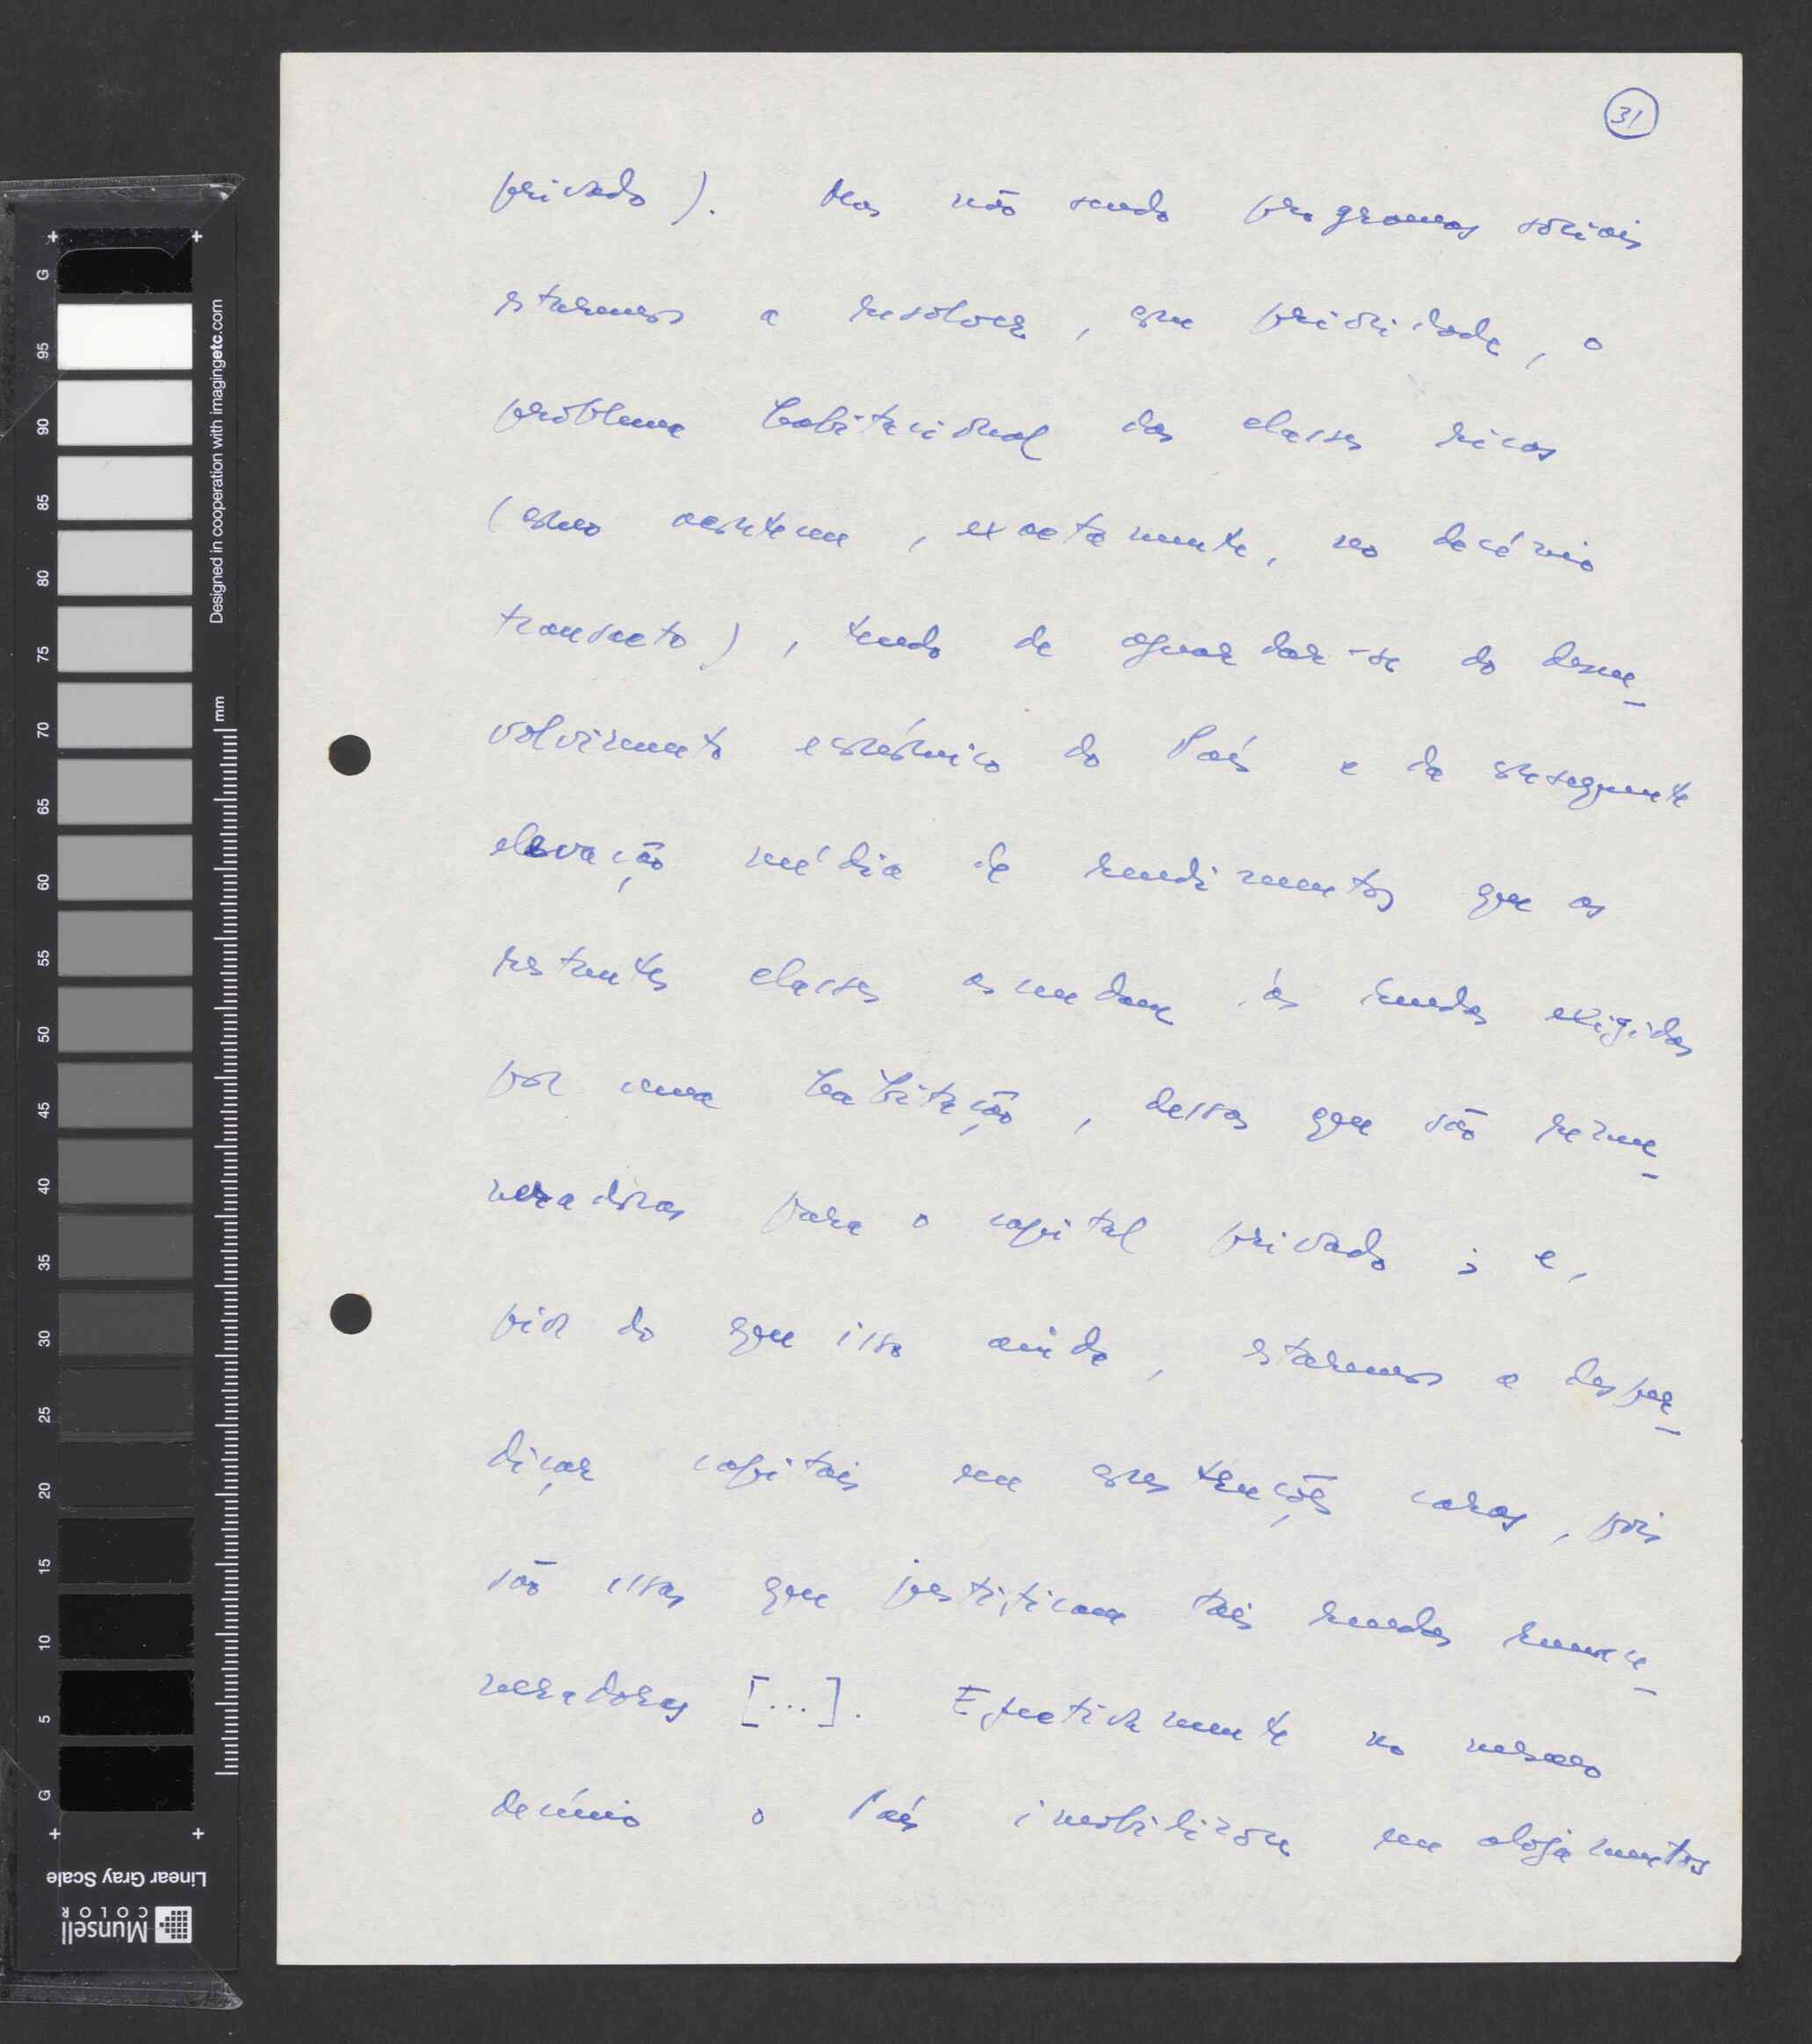 31
privado). Mas não sendo programas sociais
estaremos a resolver, com prioridade, o
problema habitacional das classes ricas
(como aconteceu, exactamente, no decénio
transacto), tendo de aguardar-se do desen-
volvimento económico do País e da consequente
elevação média de rendimentos que as
restantes classes ascendam às rendas exigidas
por uma habitação, dessas que são remu-
neradoras para o capital privado; e,
pior do que isso ainda, estaremos a desper-
diçar capitais em construções caras, pois
são essas que justificam tais rendas remu-
neradoras [...]. Efectivamente no mesmo
decénio o País imobilizou em alojamentos
G
95
90
85
80
75
70
65
60
55
50
45
40
35
30
25
20
15
10
5
G
Designed in cooperation with imagingetc.com
mm
Linear Gray Scale
Munsell
COLOR